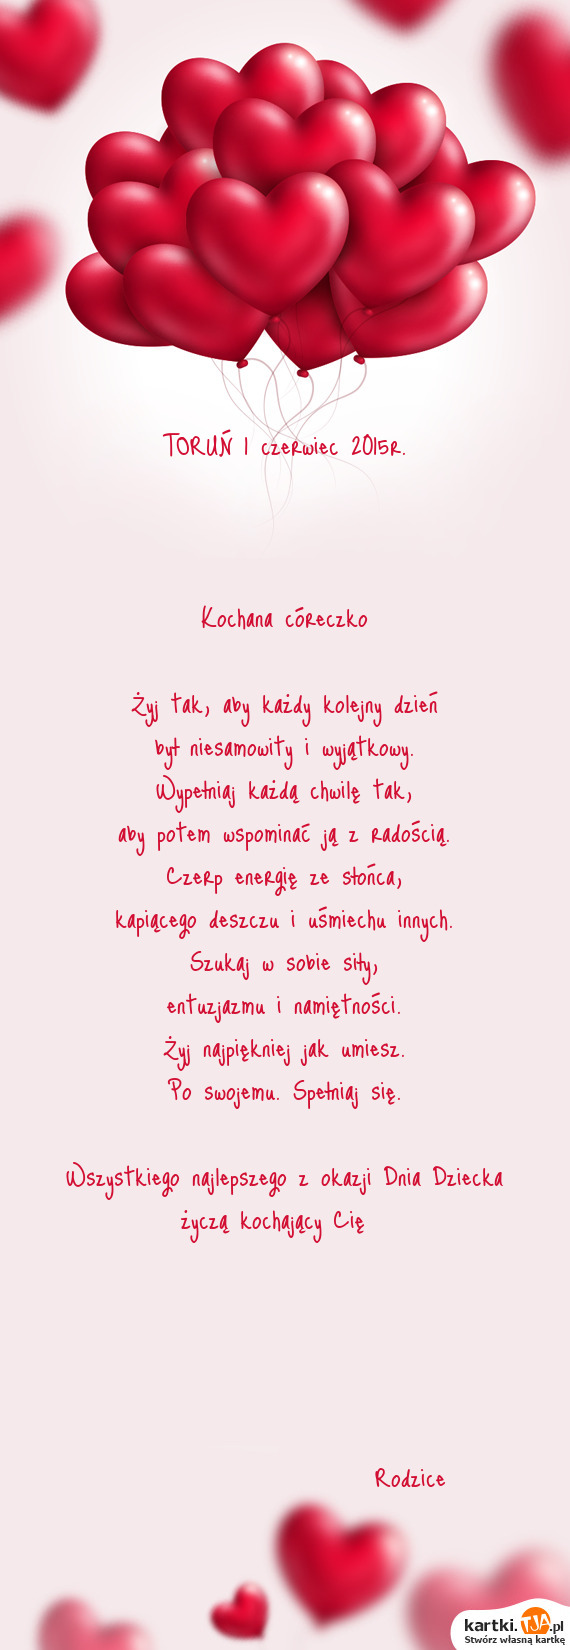 TORUŃ 1 czerwiec 2015r.
Kochana córeczko
Żyj tak, aby każdy kolejny dzień
był niesamowity i wyjątkowy.
Wypełniaj każdą chwilę tak,
aby potem wspominać ją z radością.
Czerp energię ze słońca,
kapiącego deszczu i uśmiechu innych.
Szukaj w sobie siły,
entuzjazmu i namiętności.
Żyj najpiękniej jak umiesz.
Po swojemu. Spełniaj się.
Wszystkiego najlepszego z okazji Dnia Dziecka
życzą kochający Cię
Rodzice
kartki.TJA.pl
Stwórz własną kartkę